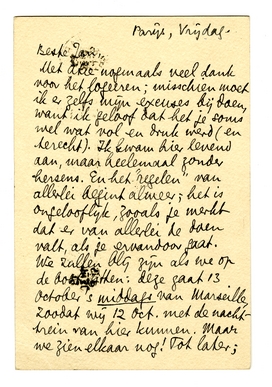 Parijs, Vrijdag.
Beste
Met nogmaals veel dank
voor het logeeren; misschien moet
ik er zelfs mijn excuses bij doen,
want ik geloof dat het je soms
wel wat vol en druk werd (en
terecht). Ik kwam hier levend
aan, maar heelemaal zonder
hersens. En het "regelen" van
allerlei begint alweer; het is
ongelooflijk, zooals je merkt
dat er van allerlei te doen
valt, als je ervandoor gaat.
We zullen blij zijn als we op
de zitten: deze gaat 13
October 's middags van Marseille,
zoodat wij 12 Oct. met de nacht-
trein van hier kunnen. Maar
we zien elkaar nog! Tot later;